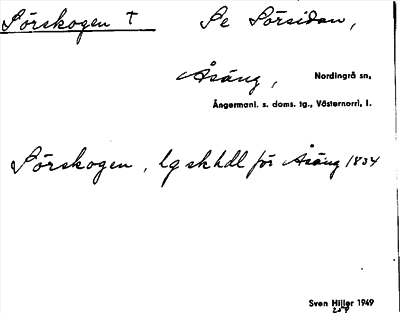 Sörskogen † Se Sörsidan,
Åsäng, Nordingrå sn,
Ångermanl. s. doms. tg., Västernorrl, l.
Sörskogen, lg skhdl för Åsäng 1834
Sven Hiller 1949